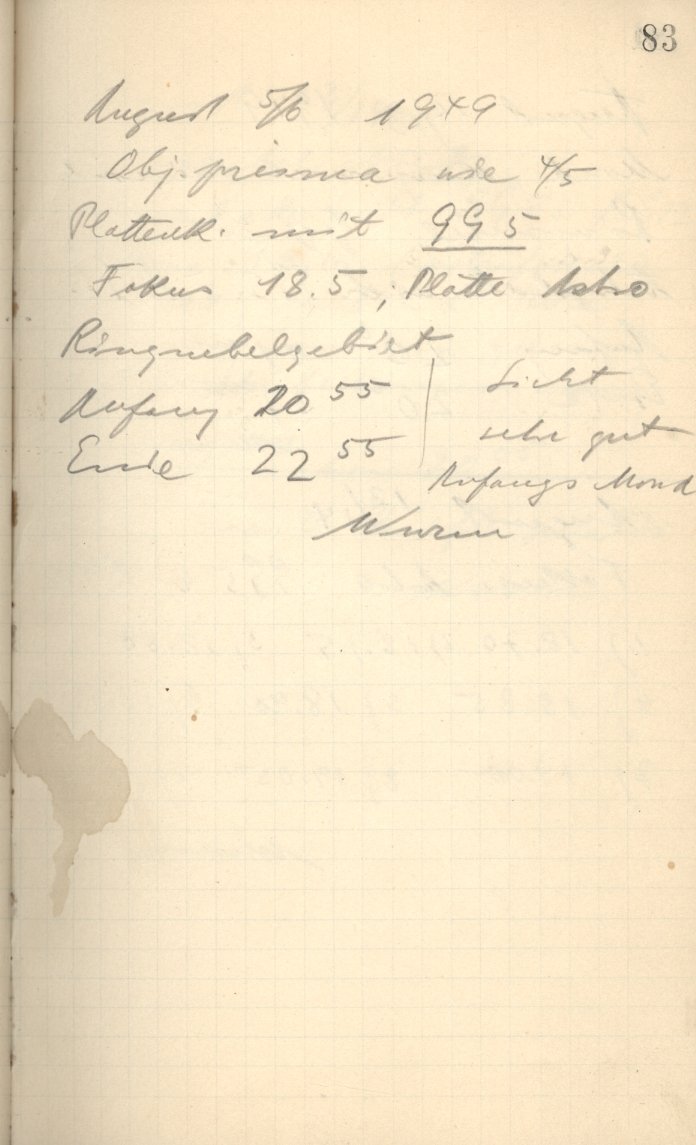 83
August 5/6 1949
Obj. prisma wie 4/5
Plattenk. mit 995
Fokus 18.5; Platte Astro
Ringnebelgebiet
Anfang 20 55
Ende 22 55
Sicht
sehr gut
Anfangs Mond
Wurm